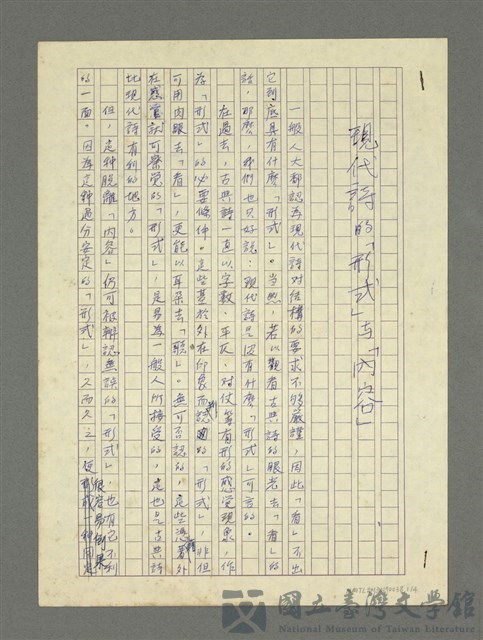 現代詩的「形式」与「內容」
一般人大都認為現代詩對結構的要求不够嚴謹，因此「看」不出
它到底具有什麼「形式」。当然，若以觀看古典詩的眼光去「看」的
話，那麼，我們也只好說：現代詩是沒有什麼「形式」可言的。
在過去，古典詩一直以字數、平仄、對仗等有形的感覚現象，作
為「形式」的必要條件。這些基於外在印象而認的「形式」，非但
可用肉眼去「看」，更能以耳朵去「聽」。無可否認的，這些憑着外
在感官就可察覚的「形式」，是易為一般人所接受的，這也是古典詩
比現代詩有利的地方。
但，這種脫離「內容」仍可被辨認無誤的「形式」，也有它不利
的一面。因為這種過分安定的「形式」，久而久之，很容易
國立臺灣文學館
National Museum of Taiwan Literature